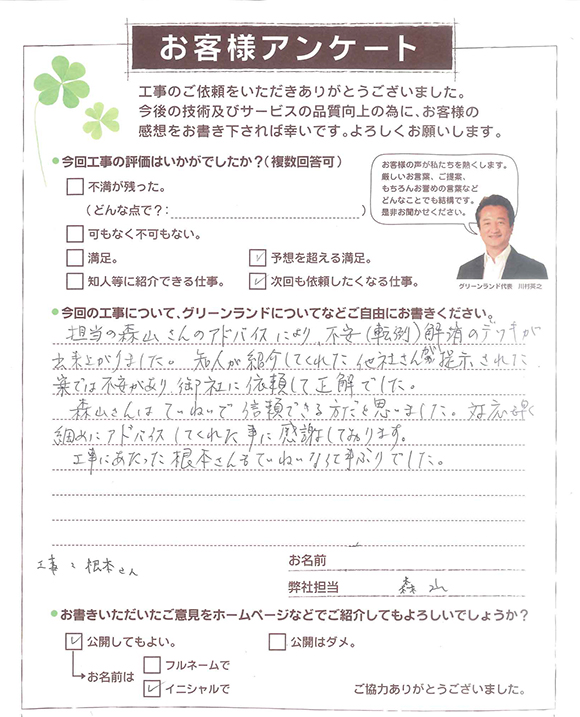 お客様アンケート
工事のご依頼をいただきありがとうございました。
今後の技術及びサービスの品質向上の為に、お客様の
感想をお書き下されば幸いです。よろしくお願いします。
今回工事の評価はいかがでしたか?(複数回答可)
不満が残った。
(どんな点で?: )
可もなく不可もない。
満足。
予想を超える満足。
知人等に紹介できる仕事。
次回も依頼したくなる仕事。
お客様の声が私たちを熱くします。
厳しいお言葉、ご提案、
もちろんお誉めの言葉など
どんなことでも結構です。
是非お聞かせください。
グリーンランド代表 川村英之
今回の工事について、グリーンランドについてなどご自由にお書きください。
担当の森山さんのアドバイスにより、不安(転倒)解消のデッキが
出来上がりました。知人が紹介してくれた他社さんが提示された
案では不安があり、御社に依頼して正解でした。
森山さんはていねいで信頼できる方だと思いました。対応も早く
細めにアドバイスしてくれた事に感謝しております。
工事にあたった根本さんもていねいな仕事ぶりでした。
工事:根本さん
お名前
弊社担当 森山
お書きいただいたご意見をホームページなどでご紹介してもよろしいでしょうか?
公開してもよい。
公開はダメ。
お名前は
フルネームで
イニシャルで
ご協力ありがとうございました。